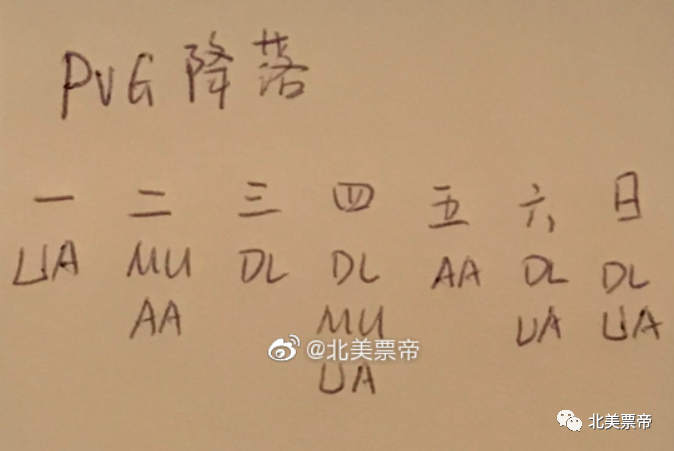 PVG降落
一 二 三 四 五 六 日
UA MU DL DL AA DL DL
AA MU UA UA
@北美票帝
UA
北美票帝